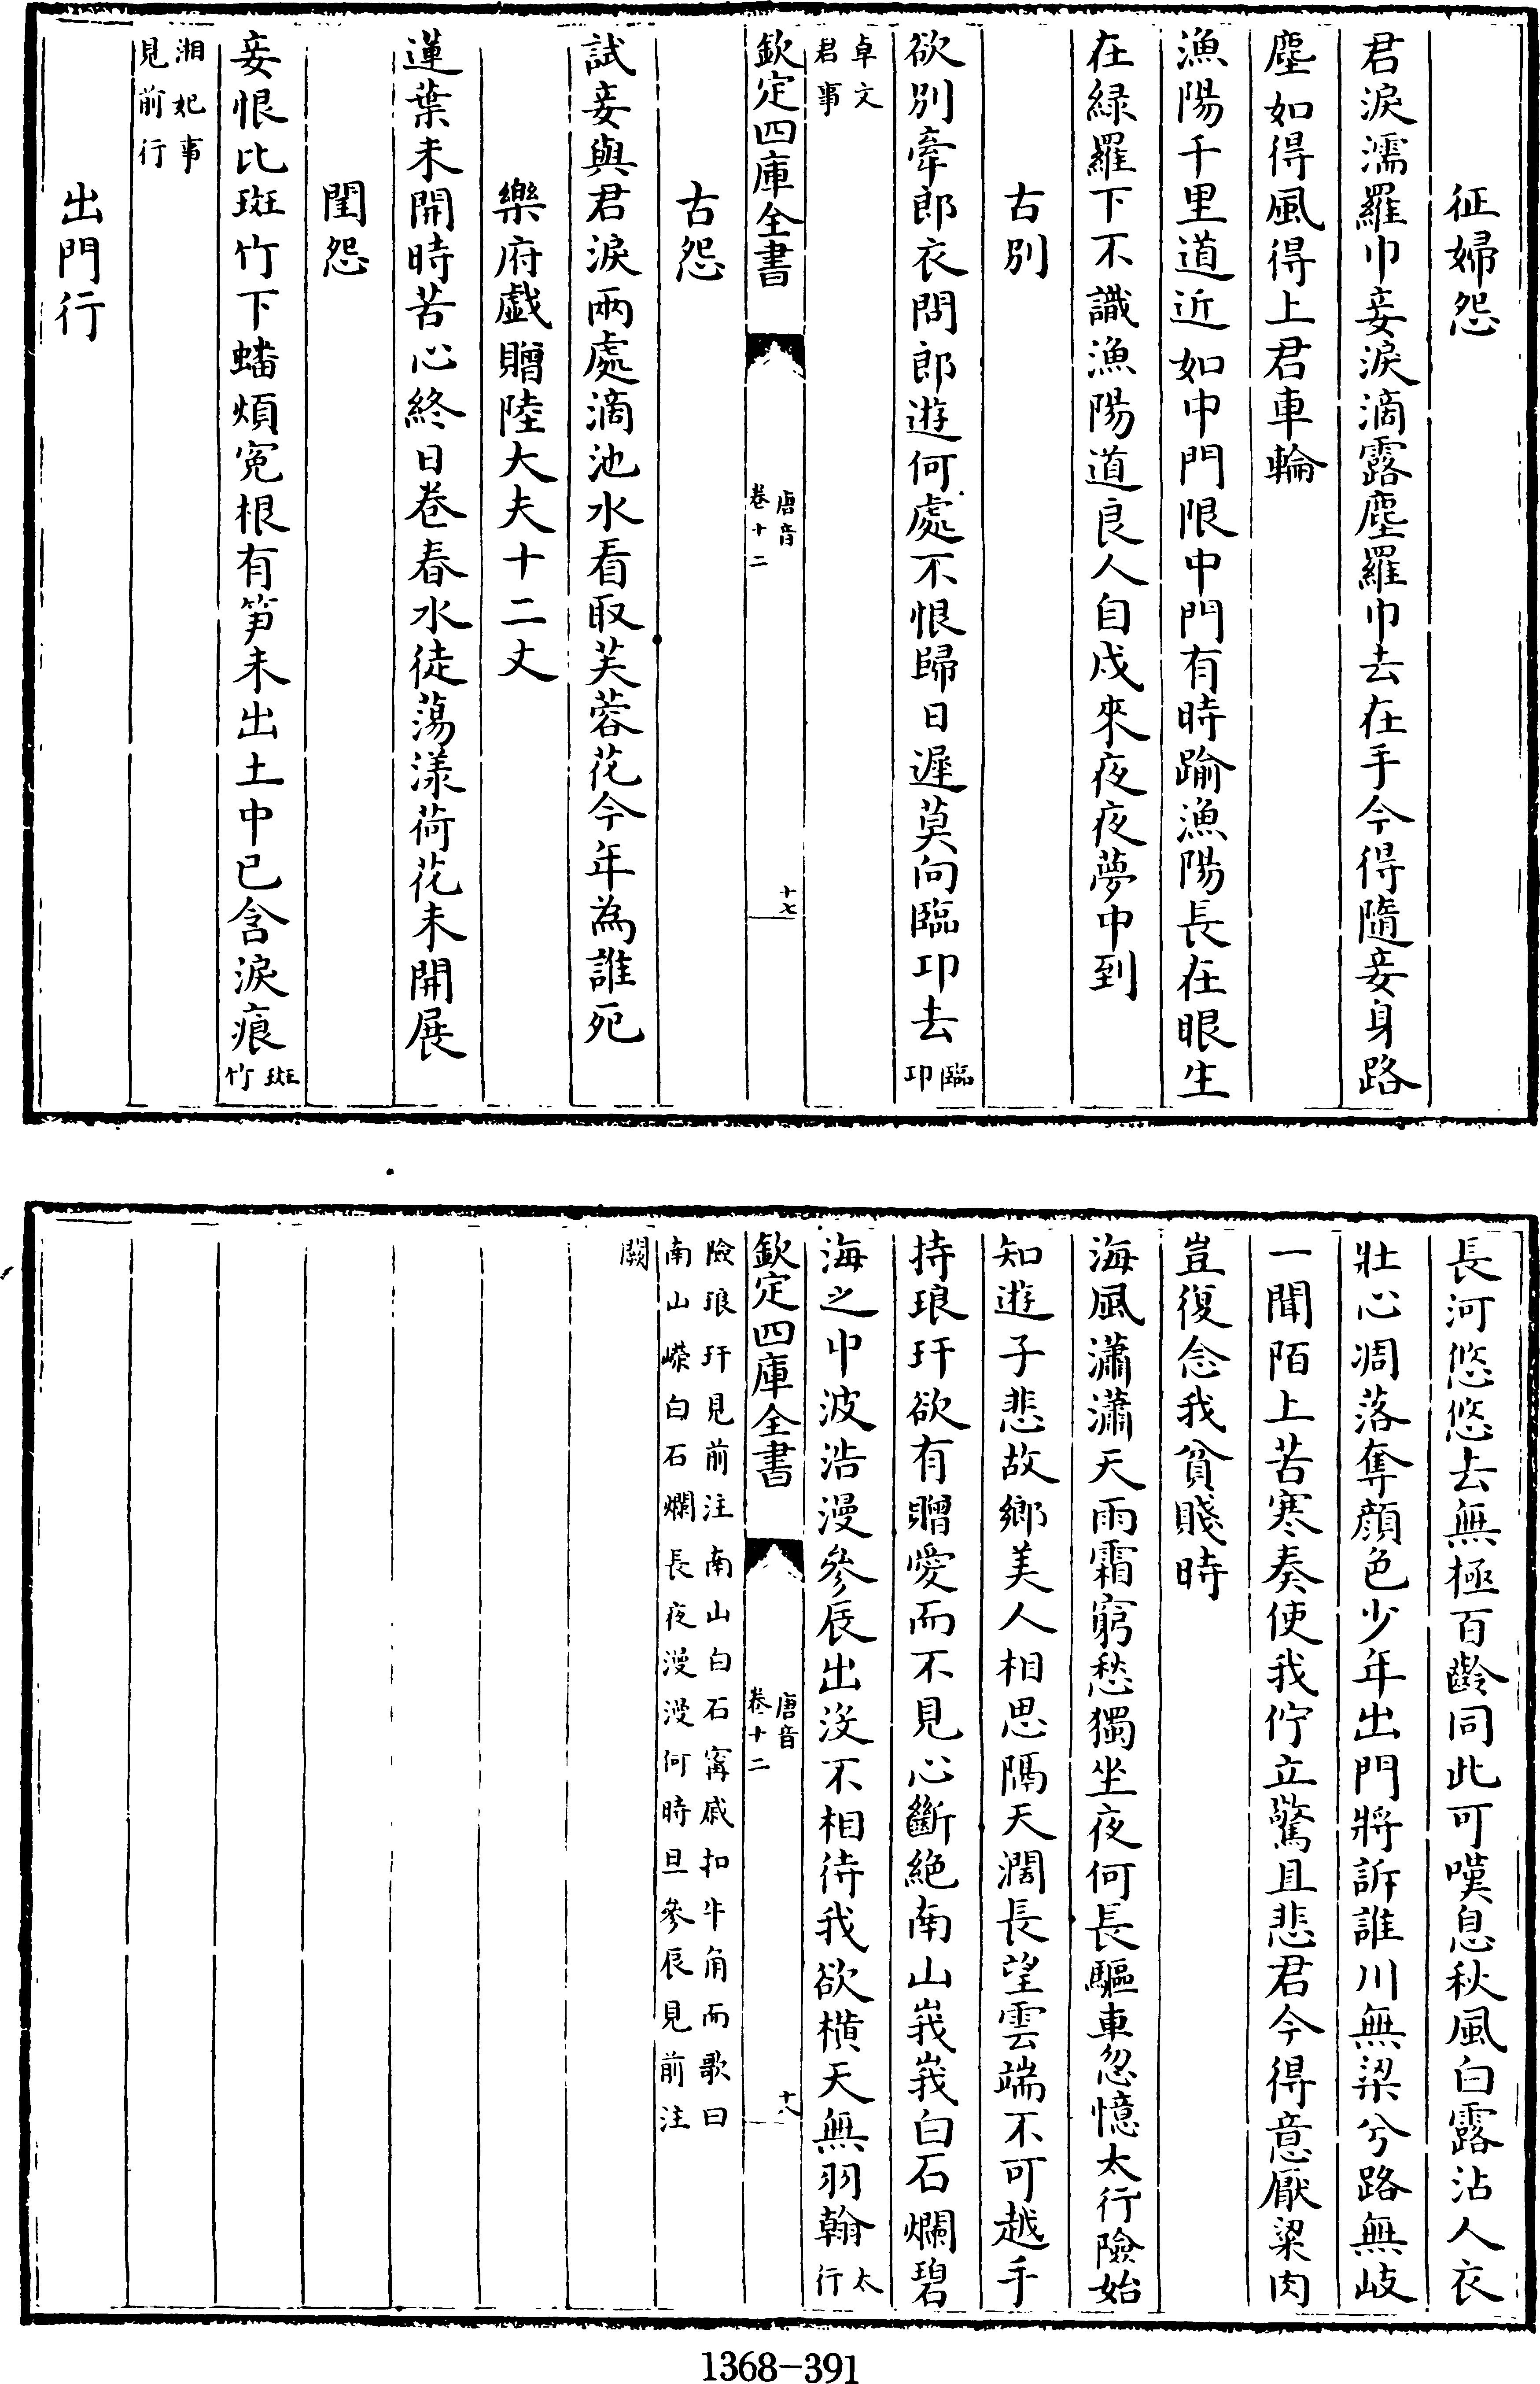 征婦怨
君淚濡羅巾妾淚滴露塵羅巾去在手今得隨妾身路
塵如得風得上君車輪
漁陽千里道近如中門限中門有時踰漁陽長在眼生
在綠羅下不識漁陽道良人自戍來夜夜夢中到
古别
欲别牽郎衣問郎遊何處不恨歸日遲莫向臨卭去臨卭
卓文君事
欽定四庫全書
唐音
卷十二
十七
古怨
試妾與君淚兩處滴池水看取芙蓉花今年為誰死
樂府戲贈陸大夫十二丈
蓮葉未開時苦心終日卷春水徒蕩漾荷花未開展
閨怨
妾恨比斑竹下蟠煩寃根有笋未出土中已含淚痕斑竹
湘妃事
見前行
出門行
長河悠悠去無極百齡同此可嘆息秋風白露沾人衣
壯心凋落奪顔色少年出門將訴誰川無梁兮路無岐
一聞陌上苦寒奏使我佇立驚且悲君今得意厭粱肉
豈復念我貧賤時
海風瀟瀟天雨霜窮愁獨坐夜何長驅車忽憶太行險始
知遊子悲故鄉美人相思隔天濶長望雲端不可越手
持琅玕欲有贈愛而不見心斷絶南山峩峩白石爛碧
海之中波浩漫參辰出沒不相待我欲橫天無羽翰太行
欽定四庫全書
唐音
卷十二
十八
險琅玕見前注南山白石甯戚扣牛角而歌曰
南山嶫白石爛長夜漫漫何時旦參辰見前注
闕
1368-391